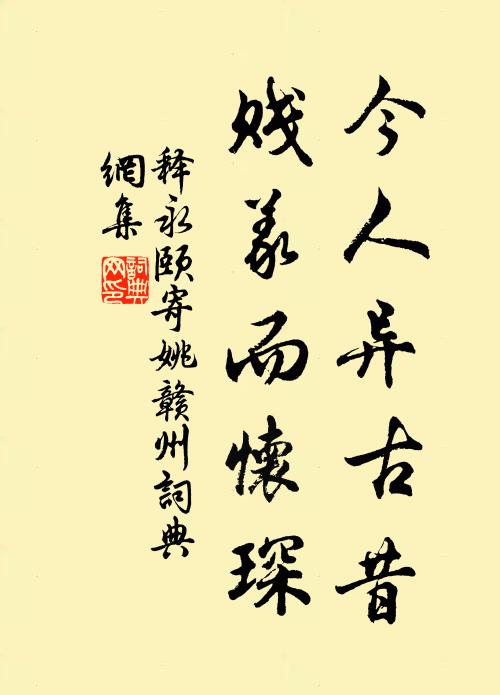 今人异古昔
贱义而懷琛
释永颐寄姚赣州詞典
網集
詞典网印